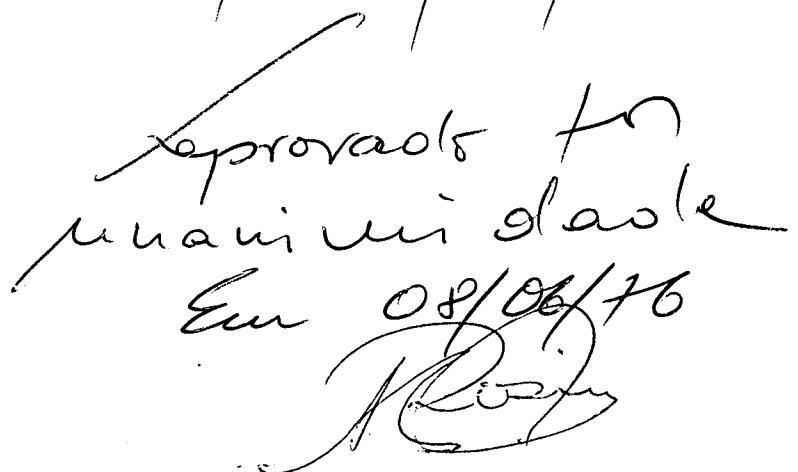 Aprovado por
unanimidade
Em 08/06/76